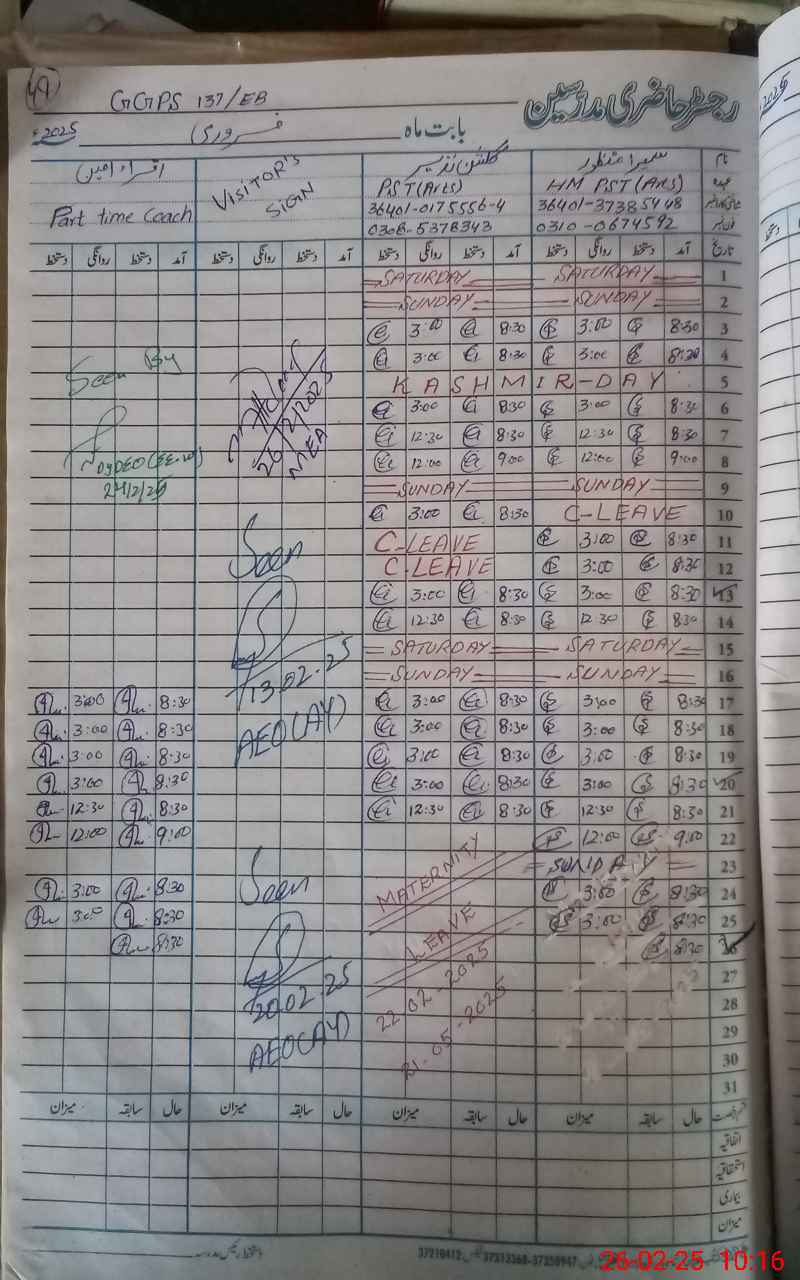 49
GGPS 137/EB
رجسٹر حاضری مدرسین
بابت ماہ فروری 2025ء
نام سمیرا منظور گلشن نذیر VISITOR'S SIGN اقراء امین
عہدہ HM PST(Arts) PST(Arts) Part time Coach
36401-3738544 8 36401-0175556-4
0310-0674592 0308-5378343
تاریخ آمد دستخط روانگی دستخط آمد دستخط روانگی دستخط آمد دستخط روانگی دستخط آمد دستخط روانگی دستخط
1 SATURDAY SATURDAY
2 SUNDAY SUNDAY
3 8:30 3:00 8:30 3:00
4 8:30 3:00 8:30 3:00
5 KASHMIR-DAY
6 8:30 3:00 8:30 3:00
7 8:30 12:30 8:30 12:30
8 9:00 12:00 9:00 12:00
9 SUNDAY SUNDAY
10 C-LEAVE 8:30 3:00
11 8:30 3:00 C-LEAVE
12 8:30 3:00 C-LEAVE
13 8:30 3:00 8:30 3:00
14 8:30 12:30 8:30 12:30
15 SATURDAY SATURDAY
16 SUNDAY SUNDAY
17 8:30 3:00 8:30 3:00 8:30 3:00
18 8:30 3:00 8:30 3:00 8:30 3:00
19 8:30 3:00 8:30 3:00 8:30 3:00
20 8:30 3:00 8:30 3:00 8:30 3:00
21 8:30 12:30 8:30 12:30 8:30 12:30
22 9:00 12:00 9:00 12:00
23 SUNDAY
24 8:30 3:00 8:30 3:00
25 8:30 3:00 8:30 3:00
26 8:30 8:30
27
28
29
30
31
MATERNITY
LEAVE
22-02-2025
21-05-2025
26/2/2025
MEA
Seen
13.02.25
AEO(AY)
Seen
20.02.25
AEO(AY)
Seen By
DyDEO
حال سابقہ میزان حال سابقہ میزان حال سابقہ میزان حال سابقہ میزان
اتفاقیہ
استحقاقیہ
بیماری
میزان
26-02-25 10:16